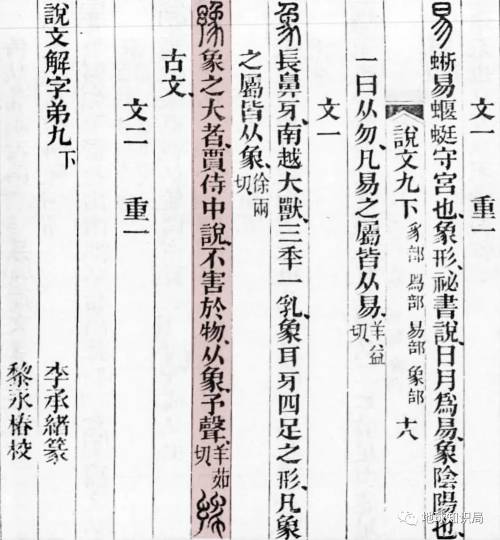 文一 重一
易蜥易、蝘蜓、守宮也、象形、祕書說、日月爲易、象陰陽也、
說文九下 豸部 𤉡部 易部 象部 十八
一曰从勿、凡易之屬皆从易、羊益切
文一
象長鼻牙、南越大獸、三季一乳、象耳牙四足之形、凡象
之屬皆从象、徐兩切
豫象之大者、賈侍中說、不害於物、从象予聲、羊茹切
古文、
文二 重一
說文解字弟九下
李承緒篆
黎永椿校
地球知识局